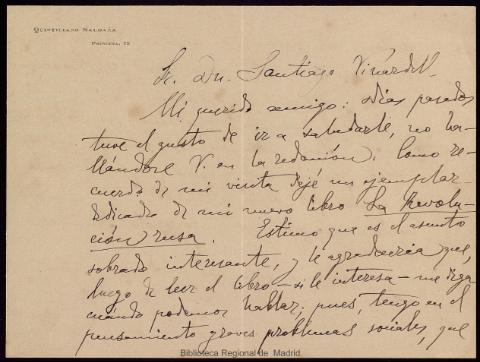 QUINTILIANO SALDAÑA
PRINCESA, 75
Sr. Dn. Santiago Vinardell.
Mi querido amigo: días pasados
tuve el gusto de ir a saludarle, no ha-
llándose V. en la redacción. Como re-
cuerdo de mi visita dejé un ejemplar
dedicado de mi nuevo libro La Revolu-
ción rusa. Estimo que es el asunto
sobrado interesante, y le agradeceria que,
luego de leer el libro – si le interesa – me diga
cuando podemos hablar; pues, tengo en el
pensamiento graves problemas sociales, que
Biblioteca Regional de Madrid